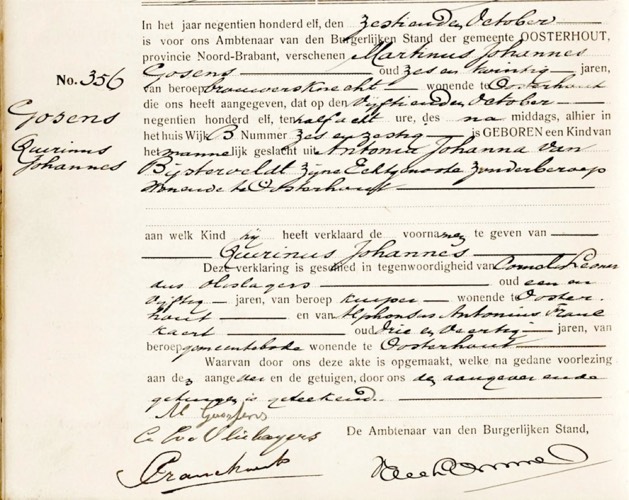 In het jaar negentien honderd elf, den zestienden October
is voor ons Ambtenaar van den Burgerlijken Stand der gemeente OOSTERHOUT,
provincie Noord-Brabant, verschenen Martinus Johannes
Gosens oud zes en twintig jaren,
No. 356
van beroep brouwersknecht wonende te Oosterhout
die ons heeft aangegeven, dat op den vijftienden October
Gosens
negentien honderd elf, ten half acht ure, des na middags, alhier in
het huis Wijk B Nummer zes en zestig is GEBOREN een Kind van
Querinus
Johannes
het mannelijk geslacht uit Antonia Johanna van
Bijsterveldt zijne Echtgenoote zonder beroep
wonende te Oosterhout
aan welk Kind hij heeft verklaard de voornamen te geven van
Querinus Johannes
Deze verklaring is geschied in tegenwoordigheid van Cornelis Leonar
dus oud een en
vijftig jaren, van beroep kuiper wonende te Ooster
hout en van Alphonsus Antonius
oud drie en veertig jaren, van
beroep gemeentebode wonende te Oosterhout
Waarvan door ons deze akte is opgemaakt, welke na gedane voorlezing
aan den aangever en de getuigen, door ons den aangever en de
getuigen is geteekend.
De Ambtenaar van den Burgerlijken Stand,